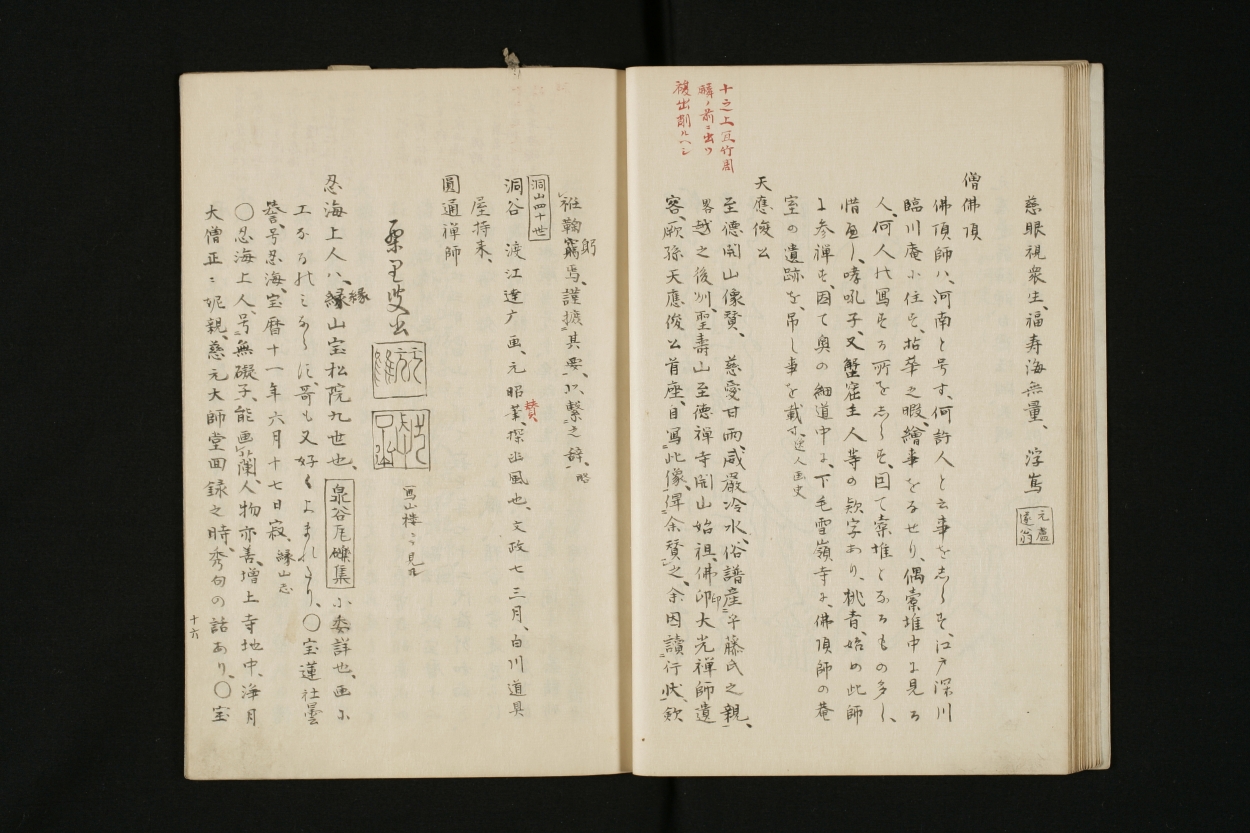 慈眼視衆生、福寿海無量、 浮嶌 元盧 蓬翁
僧佛頂
佛頂師ハ、河南と号す、何許人と云事を志らす、江戸深川
臨川庵小住す、拈華之暇、繪事をるせり、偶 中に見る
人、何人の写する所を志らす、因て となるもの多し、
惜 し、哮吼子、又蟹窟主人等の欵字あり、桃青、始め此師
に参禅す、因て奥の細道中に、下毛雪嶺寺に、佛頂師の菴
室の遺跡を、吊し事を載す、 人画史
天應俊公
十之上 竹周
ノ前ニ出ツ
複出削ルヘシ
至德開山像賛、 慈愛甘雨、威嚴冷水、俗譜産平藤氏之親、
畧越之後州、聖壽山至德禅寺開山始祖、佛印大光禅師遺
客、厥孫天應俊公首座、自写此像、俾余賛之、余因讀行状、欽
衽鞠躬焉、謹據其要、以繫之辞、略
洞山四十世
洞谷 渡江達广画、元昭賛、探幽風也、文政七 三月、白川道具
屋持来、
圓通禅師
写山楼ニ而見ル
忍海上人ハ、縁山宝松院九世也、泉谷瓦礫集 小委詳也、画小
工なるのミならす、哥も又好くよまれたり、〇宝蓮社曇
誉、号忍海、宝暦十一年六月十七日寂、縁山志
〇忍海上人、号無礙子、能画蘭、人物亦善、増上寺地中、海月
大僧正ニ昵親、慈元大師堂回録之時、秀句の話あり、〇宝
十六